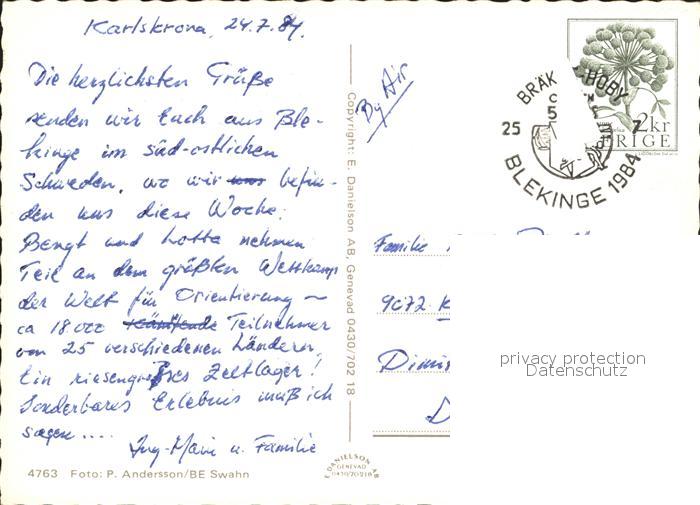 Karlskrona, 24.7.84.
Die herzlichsten Grüße
senden wir Euch aus Ble-
kinge im süd-östlichen
Schweden, wo wir uns befin-
den uns diese Woche.
Bengt und Lotta nehmen
Teil an dem größten Wettkampf
der Welt für Orientierung –
ca 18.000 Kämpfende Teilnehmer
von 25 verschiedenen Ländern,
Ein riesengroßes Zeltlager!
Sonderbares Erlebnis muß ich
sagen....
Ing-Marie u. Familie
4763 Foto: P. Andersson/BE Swahn
Copyright: E. Danielson AB, Genevad 0430/702 18
DANIELSON AB
GENEVAD
0430/70218
By Air
BRÄK HOBY
25 7
BLEKINGE 1984
2kr
SVERIGE
Familie
9072
privacy protection
Datenschutz